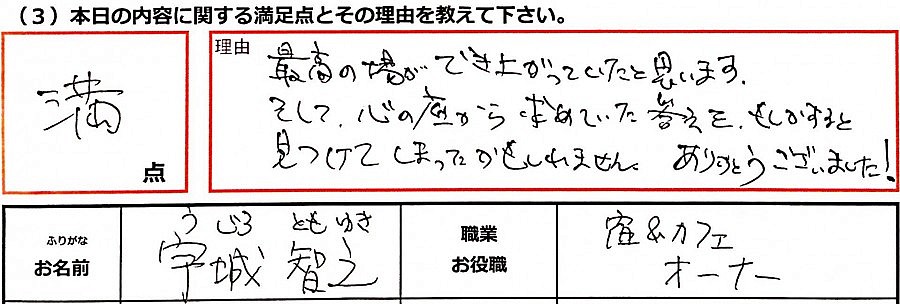 （3）本日の内容に関する満足点とその理由を教えて下さい。
満
点
理由
最高の場ができ上がっていたと思います。
そして、心の底から求めていた答えを、もしかすると
見つけてしまったかもしれません。ありがとうございました！
ふりがな
うじろ ともゆき
お名前
宇城 智之
職業
お役職
窯&カフェ
オーナー